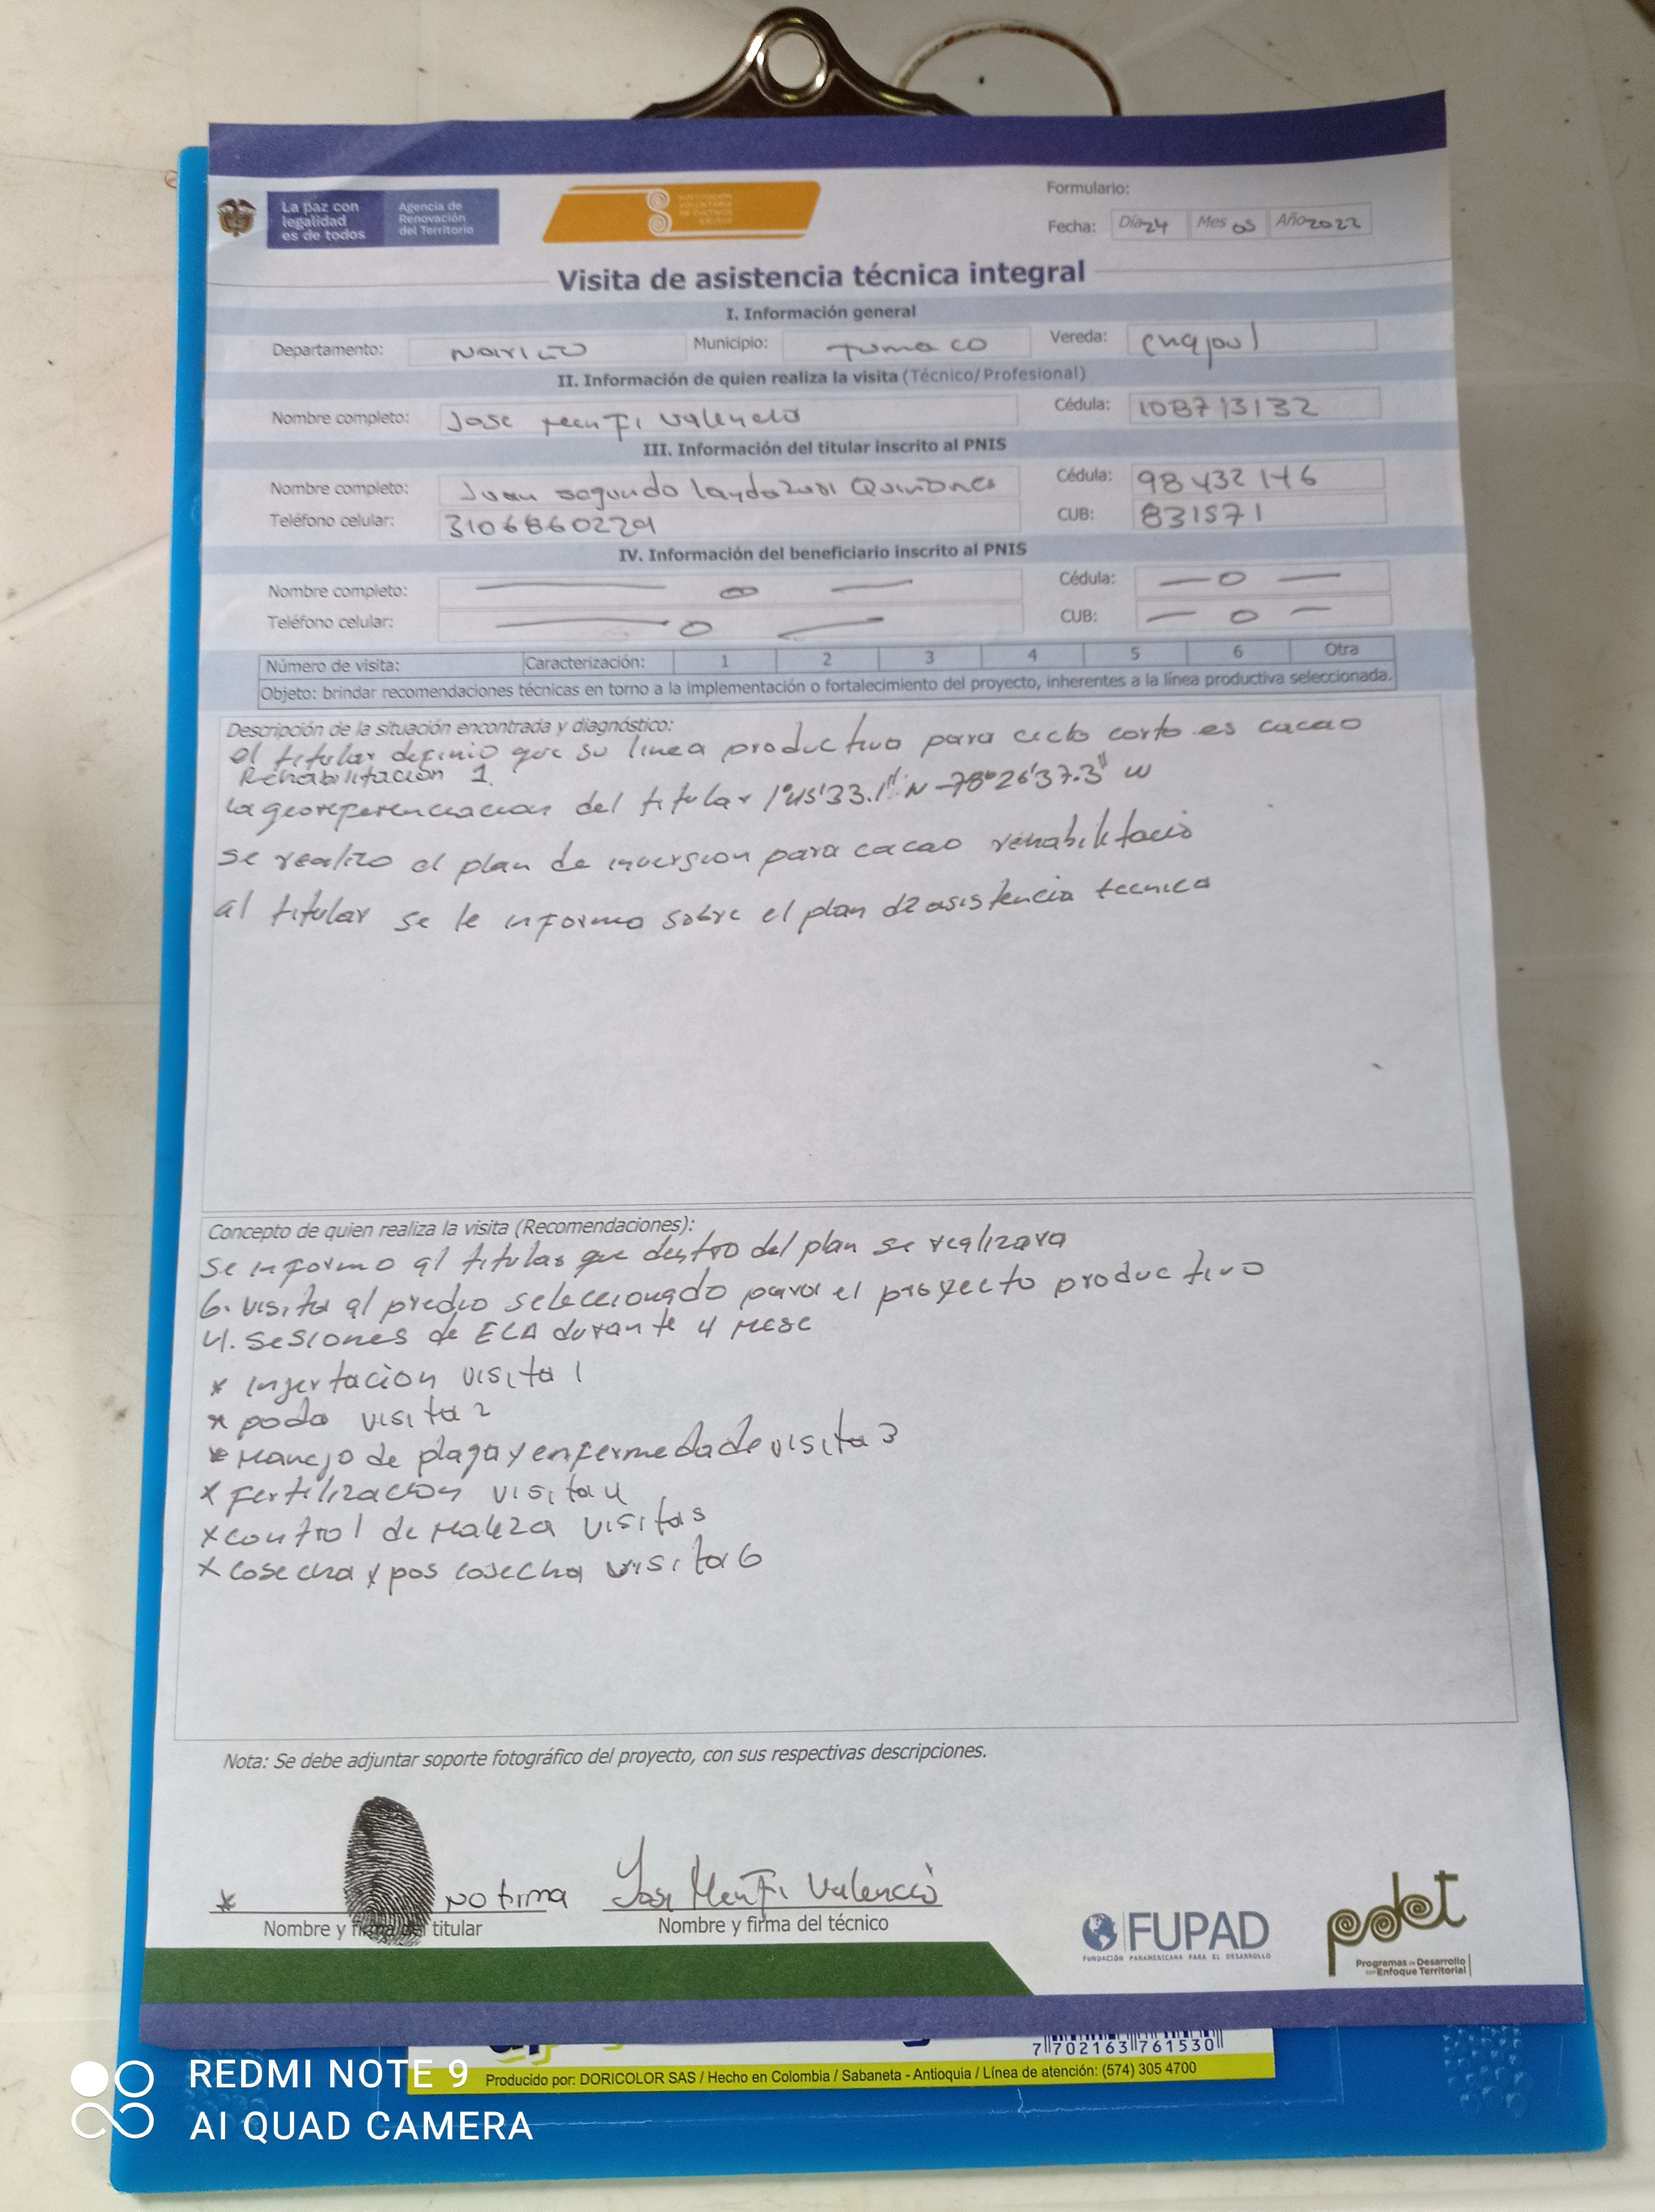 La paz con
legalidad
es de todos
Agencia de
Renovación
del Territorio
SUSTITUCIÓN
VOLUNTARIA
DE CULTIVOS
ILÍCITOS
Formulario:
Fecha: Día 24 Mes 05 Año 2022
Visita de asistencia técnica integral
I. Información general
Departamento: Nariño Municipio: Tumaco Vereda:
II. Información de quien realiza la visita (Técnico/Profesional)
Nombre completo: Jose Menfi Valencia Cédula: 108713132
III. Información del titular inscrito al PNIS
Nombre completo: Juan segundo Landazuri Quiñones Cédula: 98432146
Teléfono celular: 3106860229 CUB: 831571
IV. Información del beneficiario inscrito al PNIS
Nombre completo: — 0 — Cédula: — 0 —
Teléfono celular: — 0 — CUB: — 0 —
Número de visita: Caracterización: 1 2 3 4 5 6 Otra
Objeto: brindar recomendaciones técnicas en torno a la implementación o fortalecimiento del proyecto, inherentes a la línea productiva seleccionada.
Descripción de la situación encontrada y diagnóstico:
el titular definio que su linea productiva para ciclo corto es cacao
Rehabilitación 1.
La georeferenciacion del titular 1°45'33.1" N -78°26'37.3" W
se realizo el plan de inversion para cacao rehabilitacio
al titular se le informo sobre el plan de asistencia tecnica
Concepto de quien realiza la visita (Recomendaciones):
Se informo al titular que dentro del plan se realizara
6. visita al predio seleccionado para el proyecto productivo
4. sesiones de ECA durante 4 mese
* injertacion visita 1
* poda visita 2
* Manejo de plaga y enfermedade visita 3
* fertilizacion visita 4
* control de maleza visita 5
* cosecha y pos cosecha visita 6
Nota: Se debe adjuntar soporte fotográfico del proyecto, con sus respectivas descripciones.
* no firma Jose Menfi Valencia
Nombre y firma del titular Nombre y firma del técnico
FUPAD
FUNDACIÓN PANAMERICANA PARA EL DESARROLLO
pdet
Programas de Desarrollo
con Enfoque Territorial
7 702163 761530
Producido por: DORICOLOR SAS / Hecho en Colombia / Sabaneta - Antioquia / Línea de atención: (574) 305 4700
REDMI NOTE 9
AI QUAD CAMERA